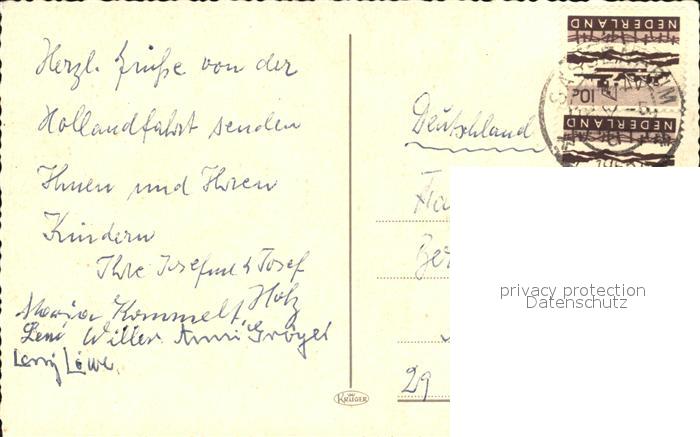 Herzl. Grüße von der
Hollandfahrt senden
Ihnen und Ihren
Kindern
Ihre Josef und Josef
Holz
Maria Kommelt,
Leni Willer Anni Gröger
Leny Löwe.
KRÜGER
NEDERLAND
10c
NEDERLAND
Deutschland
Fra
Ber
29
privacy protection
Datenschutz